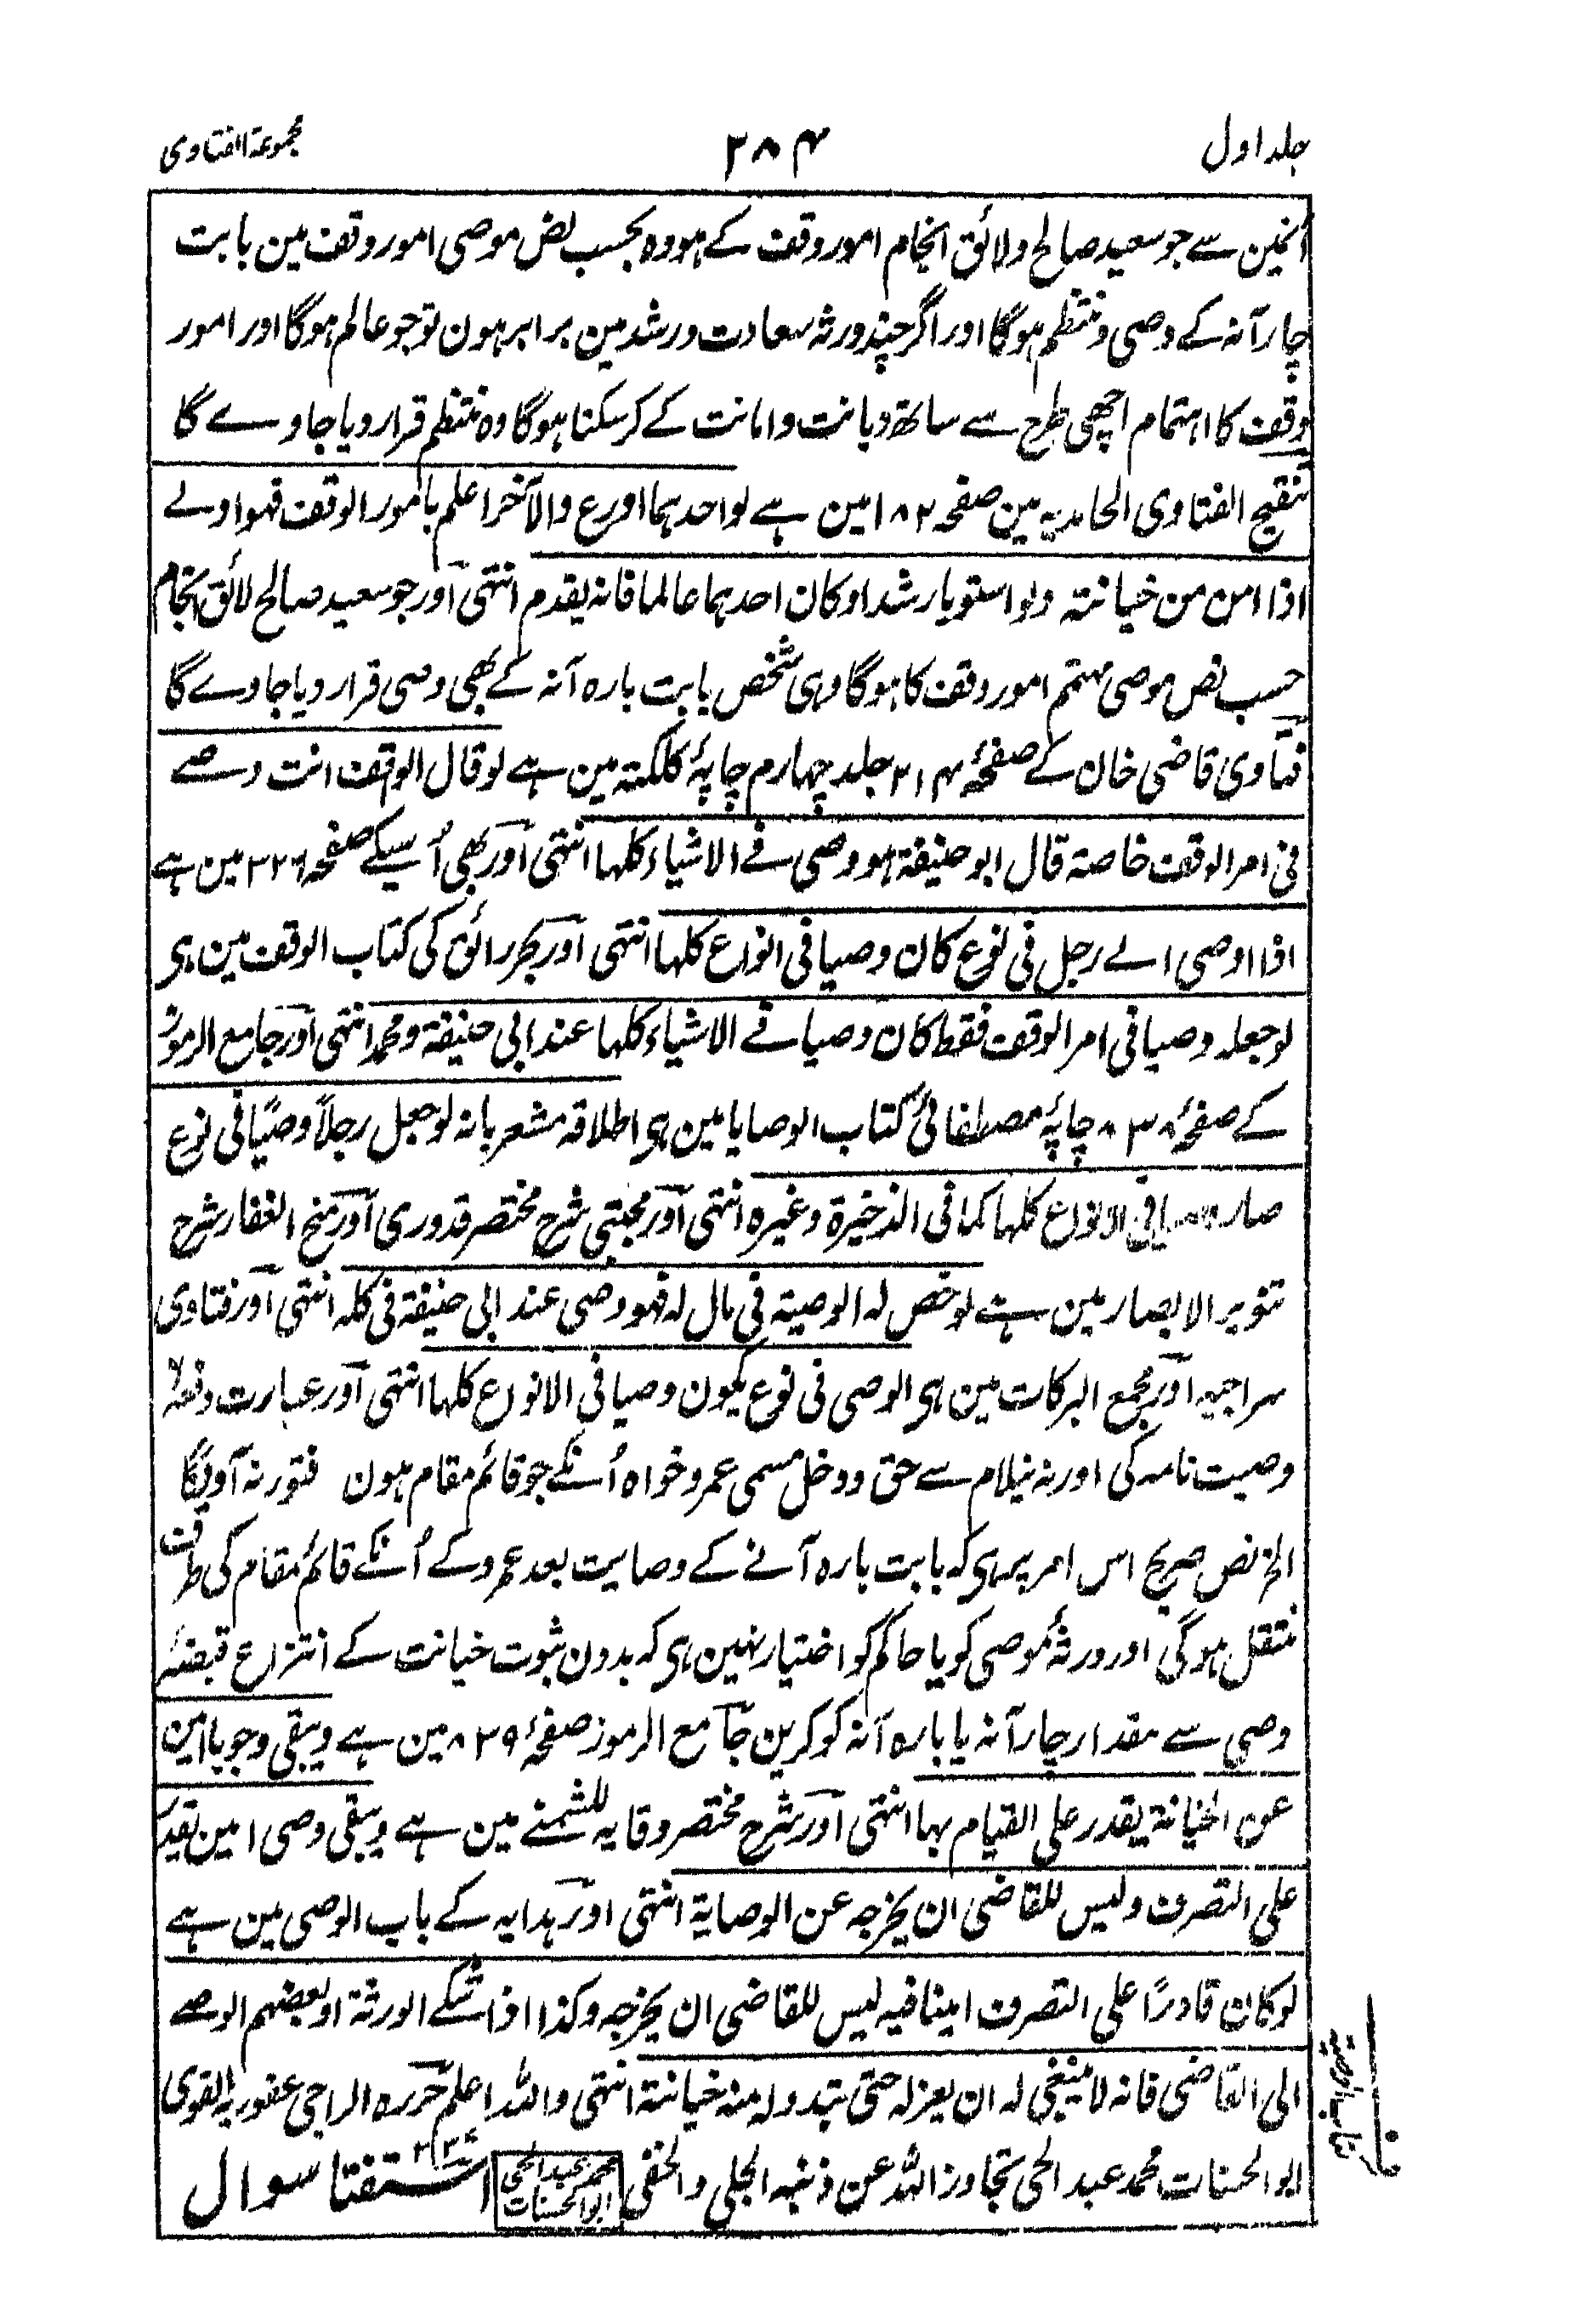 جلد اول
۲۸۴
مجموعۃ الفتاوی
اُنمین سے جو سعید صالح ولائق انجام امور وقف کے ہو وہ بحسب نص موصی امور وقف مین بابت
چار آنہ کے وصی ومنتظم ہوگا اور اگر چند ورثہ سعادت ورشد مین برابر ہون تو جو عالم ہوگا اور امور
وقف کا اہتمام اچھی طرح سے ساتھ دیانت وامانت کے کرسکتا ہوگا وہ منتظم قرار دیا جاوے گا
تنقیح الفتاوی الحامدیہ مین صفحہ ۱۸۲ مین ہے لو احدہما اورع والآخر اعلم بامور الوقف فہو اولے
اذا امن من خیانتہ ولو استویا رشدا وکان احدہما عالما فانہ یقدم انتہی اور جو سعید صالح لائق انجام
حسب نص موصی مہتمم امور وقف کا ہوگا وہی شخص بابت بارہ آنہ کے بھی وصی قرار دیا جاوے گا
فتاوی قاضی خان کے صفحۂ ۲۱۴ جلد چہارم چاپۂ کلکتہ مین ہے لو قال الوقف انت وصے
فی امر الوقف خاصۃ قال ابو حنیفۃ ہو وصی فے الاشیاء کلہا انتہی اور بھی اُسیکے صفحہ ۲۲۶ مین ہے
اذا اوصی الے رجل فی نوع کان وصیا فی انواع کلہا انتہی اور بحر رائق کی کتاب الوقف مین ہی
لو جعلہ وصیا فی امر الوقف فقط کان وصیا فے الاشیاء کلہا عند ابی حنیفۃ ومحمد انتہی اور جامع الرموز
کے صفحۂ ۸۳۸ چاپۂ مصطفائی کتاب الوصایا مین ہی اطلاقہ مشعر بانہ لو جعل رجلاً وصیًا فی نوع
صار وصیا فی الانواع کلہا کما فی الذخیرۃ وغیرہ انتہی اور مجتبی شرح مختصر قدوری اور منح الغفار شرح
تنویر الابصار مین ہے لو خص لہ الوصیۃ فی مال لہ فہو وصی عند ابی حنیفۃ فی کلہ انتہی اور فتاوی
سراجیہ اور مجمع البرکات مین ہی الوصی فی نوع یکون وصیا فی الانواع کلہا انتہی اور عبارت دفعۂ
وصیت نامہ کی اور نہ نیلام سے حق ودخل مسمی عمرو خواہ اُنکے جو قائم مقام ہون فتور نہ آویگا
الخ نص صریح اس امر پر ہی کہ بابت بارہ آنے کے وصایت بعد عمرو کے اُنکے قائم مقام کی طرف
منتقل ہوگی اور ورثۂ موصی کو یا حاکم کو اختیار نہین ہی کہ بدون ثبوت خیانت کے انتزاع قبضۂ
وصی سے مقدار چار آنہ یا بارہ آنہ کو کرین جامع الرموز صفحۂ ۸۳۹ مین ہے ویبقی وجوبا امین
عن الخیانۃ یقدر علی القیام بہا انتہی اور شرح مختصر وقایہ للشمنے مین ہے ویبقی وصی امین یقدر
علی التصرف ولیس للقاضی ان یخرجہ عن الوصایۃ انتہی اور ہدایہ کے باب الوصی مین ہے
لو کان قادرًا علی التصرف امینا فیہ لیس للقاضی ان یخرجہ وکذا اذا شکے الورثۃ او بعضہم الوصے
الی القاضی فانہ لا ینبغی لہ ان یعزلہ حتی یبدو لہ منہ خیانۃ انتہی واللہ اعلم حررہ الراجی عفو ربہ القوی
ابو الحسنات محمد عبد الحی تجاوز اللہ عن ذنبہ الجلی والخفی
محمد عبد الحی ابو الحسنات
استفتا سوال